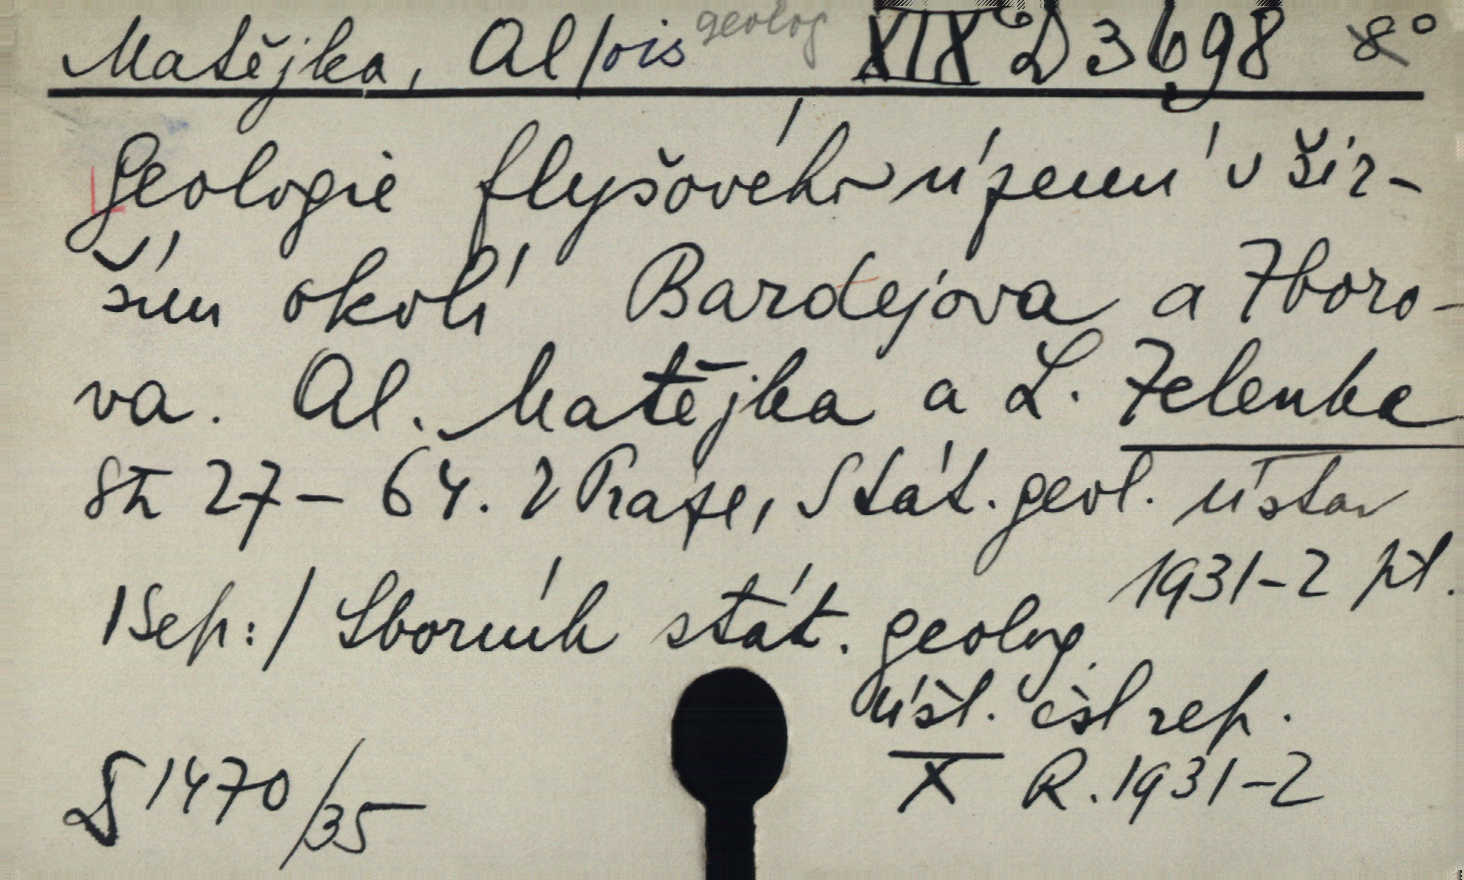 Matějka, Al/ois geolog XIX D 3698 8°
Geologie flyšového území v šir-
šim okolí Bardejova a Zboro-
va. Al. Matějka a L. Zelenka
Str 27-64. V Praze, Stát. geol. ústav
1931-2 př.
/Sep:/ Sborník stát. geolog.
úst. čsl rep.
X R. 1931-2
§ 1470/35